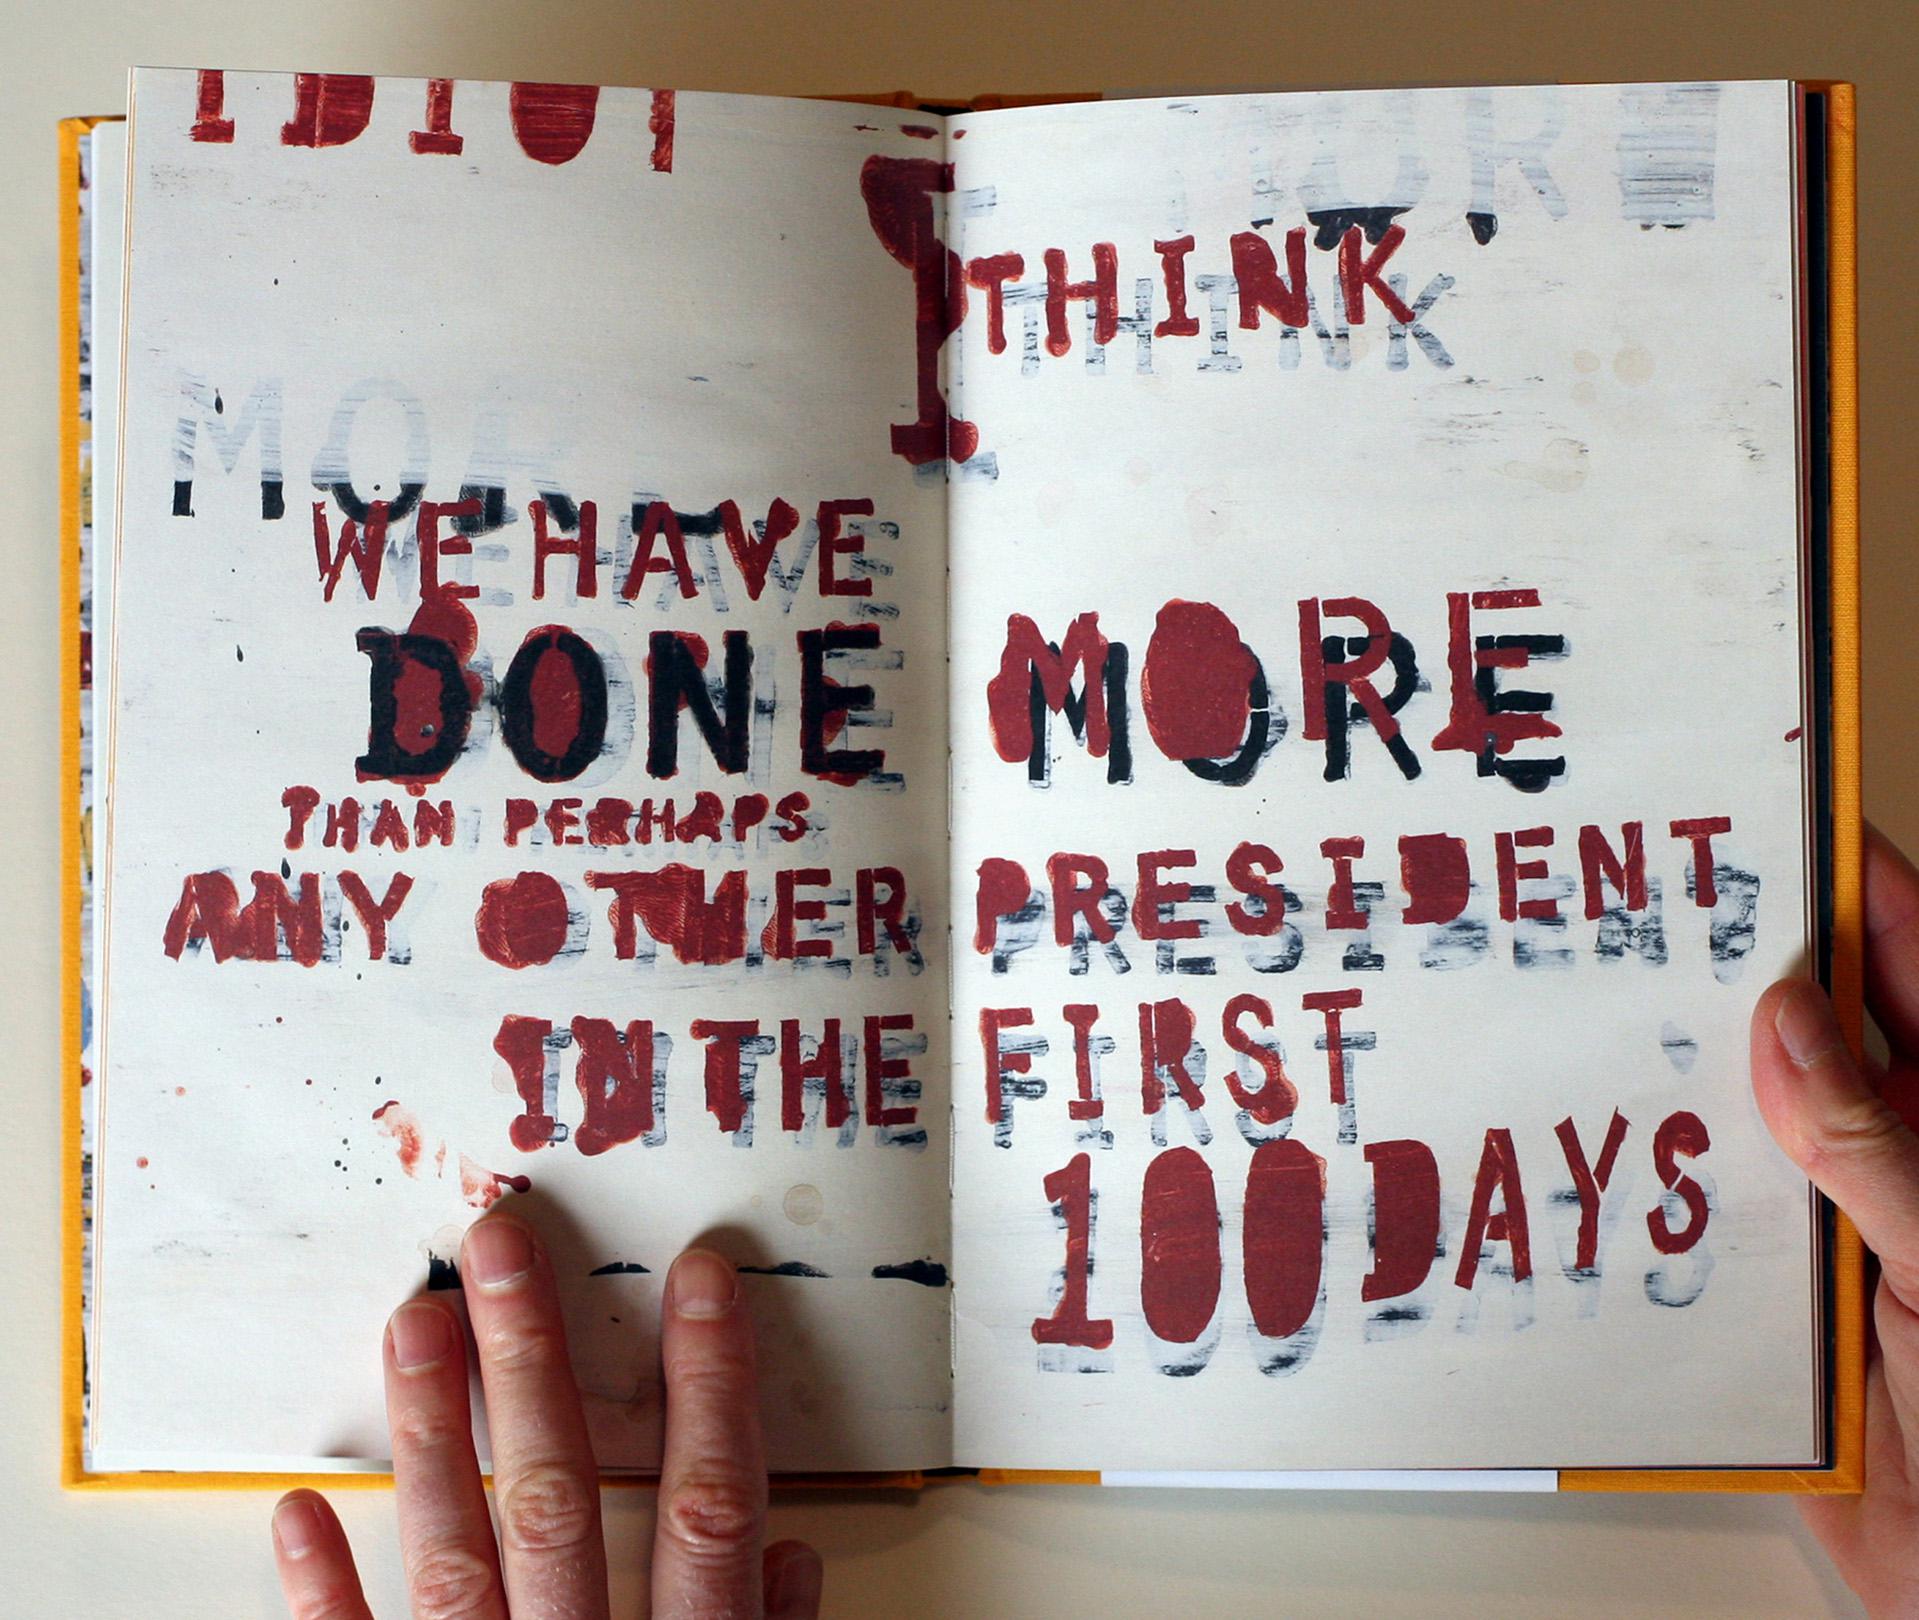 IDIOT
MORE
I THINK
MOR
WE HAVE
DONE MORE
THAN PERHAPS
ANY OTHER PRESIDENT
IN THE FIRST
100 DAYS